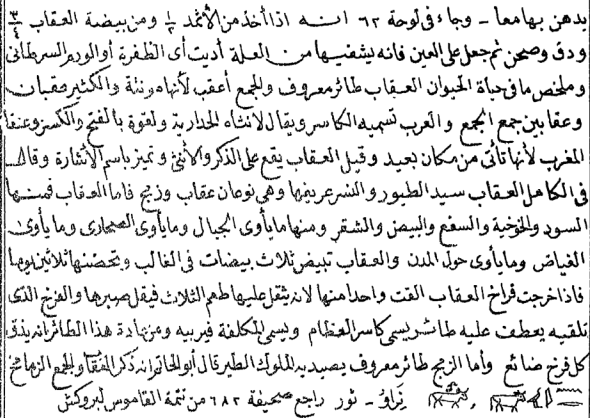 يدهن بها معا – وجاء فى لوحة ٦٢ انه اذا أخذ من الاثمد ١/٢ ومن بيضة العقاب ٣/٤
ودق وصحن ثم جعل على العين فانه يشفيها من العلة أديت أى الظفرة أو الورم السرطانى
وملخص ما فى حياة الحيوان العقاب طائر معروف والجمع أعقب لأنها مؤنثة والكثير عقبان
وعقابين جمع الجمع والعرب تسميه الكاسر ويقال لانثاه الخدارية ولقوة بالفتح والكسر وعنقا
المغرب لأنها تأتى من مكان بعيد وقيل العقاب يقع على الذكر والأنثى وتميز باسم الاشارة وقال
فى الكامل العقاب سيد الطيور والنسر عريفها وهى نوعان عقاب وزمج فاما العقاب فمنها
السود والخوخية والسفع والبيض والشقر ومنها ما يأوى الجبال وما يأوى الصحارى وما يأوى
الغياض وما يأوى حول المدن والعقاب تبيض ثلاث بيضات فى الغالب وتحضنها ثلاثين يوما
فاذا خرجت فراخ العقاب القت واحدا منها لانه يثقل عليها طعم الثلاث فيقل صبرها والفرخ الذى
تلقيه يعطف عليه طائر يسمى كاسر العظام ويسمى المكلفة فيربيه ومن عادة هذا الطائر انه يزق
كل فرخ ضائع وأما الزمج طائر معروف يصيد به الملوك الطير قال أبو حاتم انه ذكر العقاب والجمع الزمامج
ثور راجع صحيفة ٦٨٢ من تتمة القاموس لبروكش